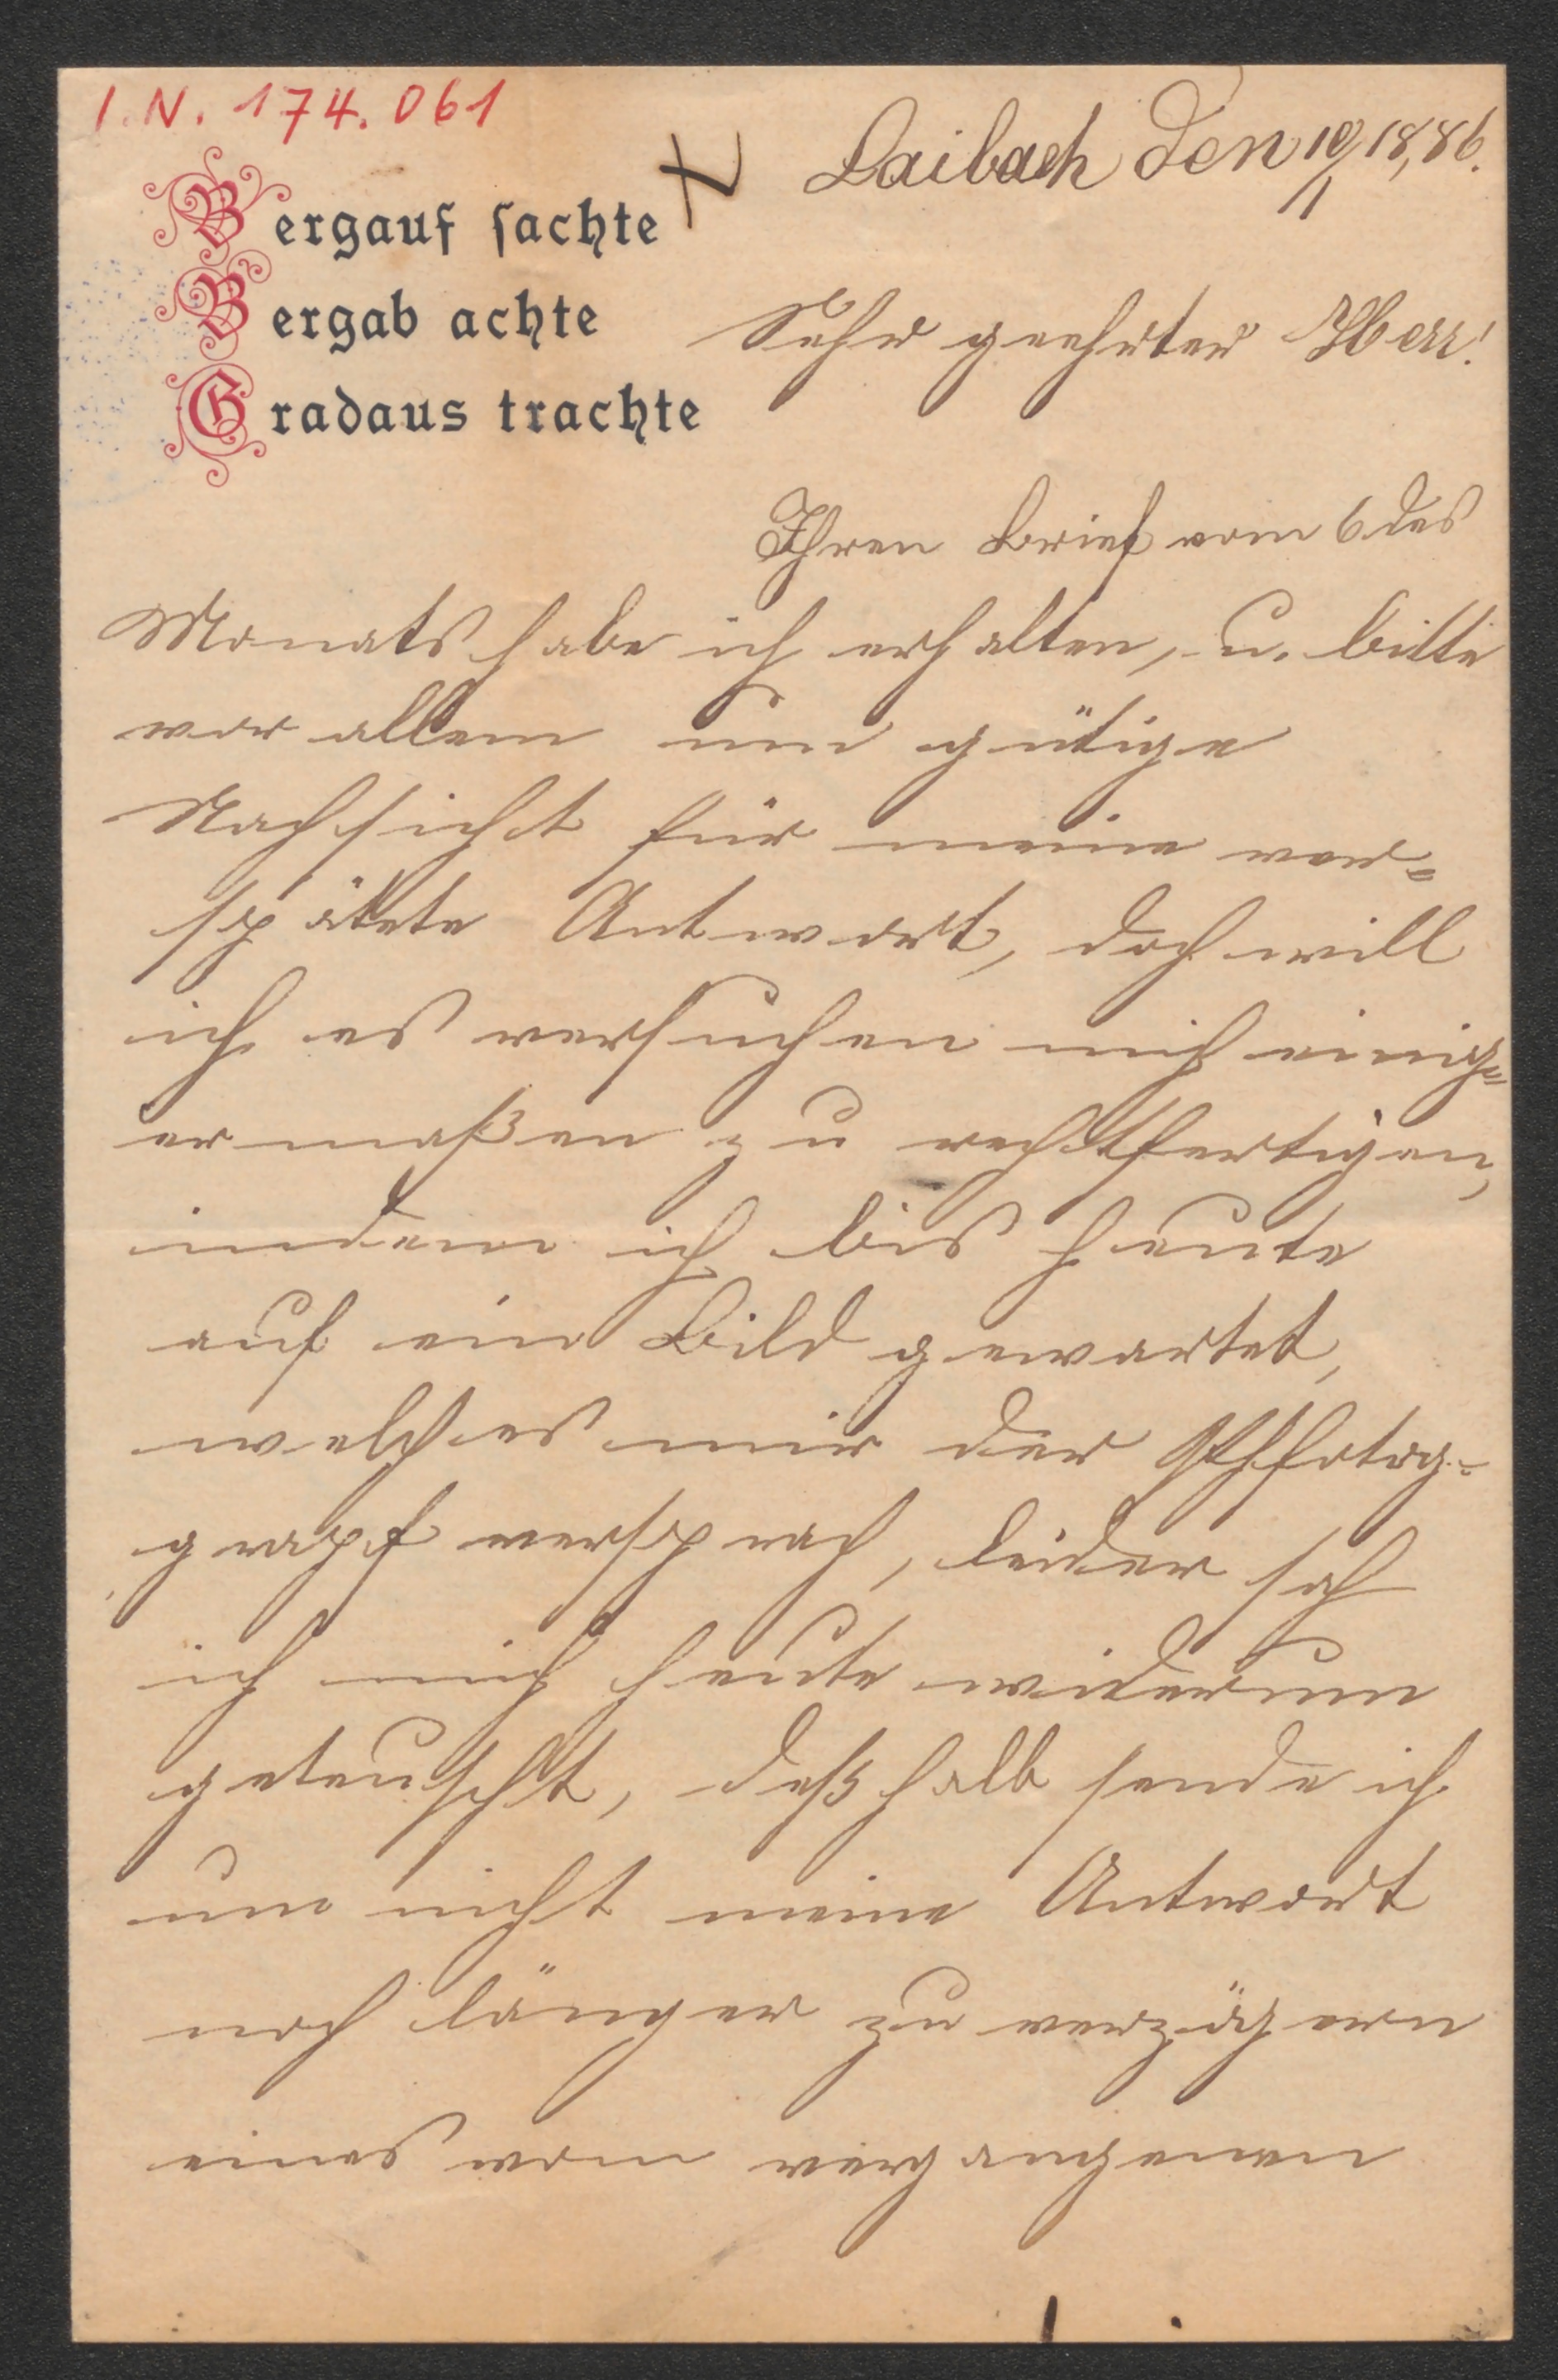 I. N. 174.061
Laibach den 19/1 18,86.
Bergauf sachte
Bergab achte
Gradaus trachte
Sehr geehrter Herr!
Ihren Brief vom 6 des
Monats habe ich erhalten, u. bitte
vor allem um gütige
Nachsicht für meine ver=
spätete Antwort, doch will
ich es versuchen mich einig=
ermaßen zu rechtfertigen,
indem ich bis heute
auf ein Bild gewartet,
welches mir der Phhotog=
grapf versprach, leider sah
ich mich heute widerum
geteuscht, deßhalb sende ich
um nicht meine Antwort
noch länger zu verzögern
eines vom vergangenen